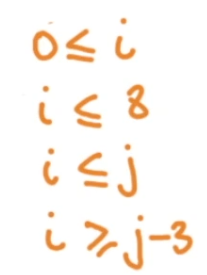 0 ≤ i
i ≤ 8
i ≤ j
i ≥ j-3